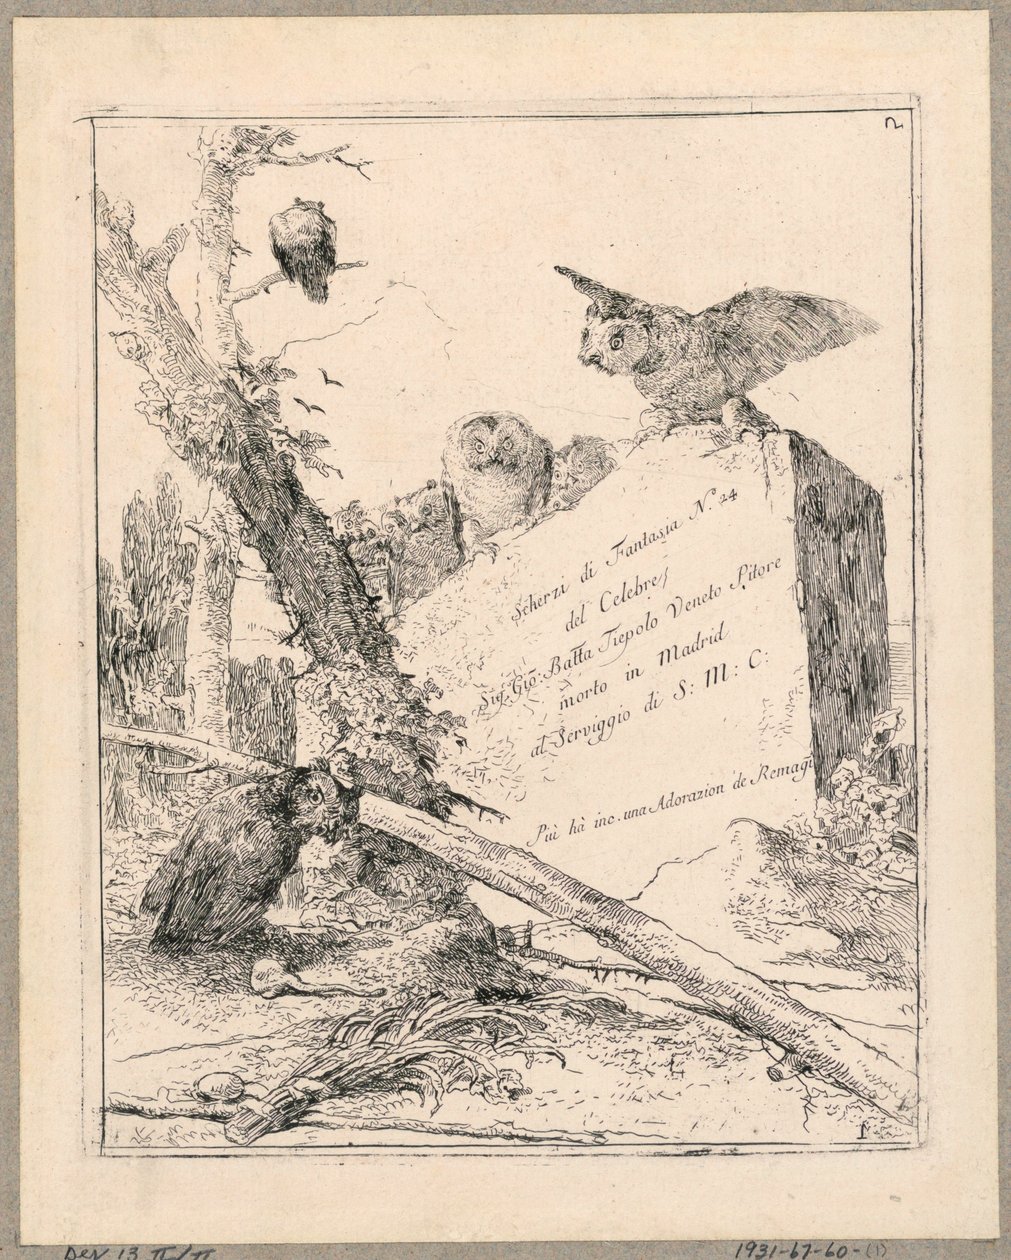 2
Scherzi di Fantasia N.º 24
del Celebre
Sig.r Gio: Batta Tiepolo Veneto Pitore
morto in Madrid
al Serviggio di S: M: C:
Più hà inc. una Adorazion de Remagi
1
Dev 13 II/II
1931-67-60-(1)